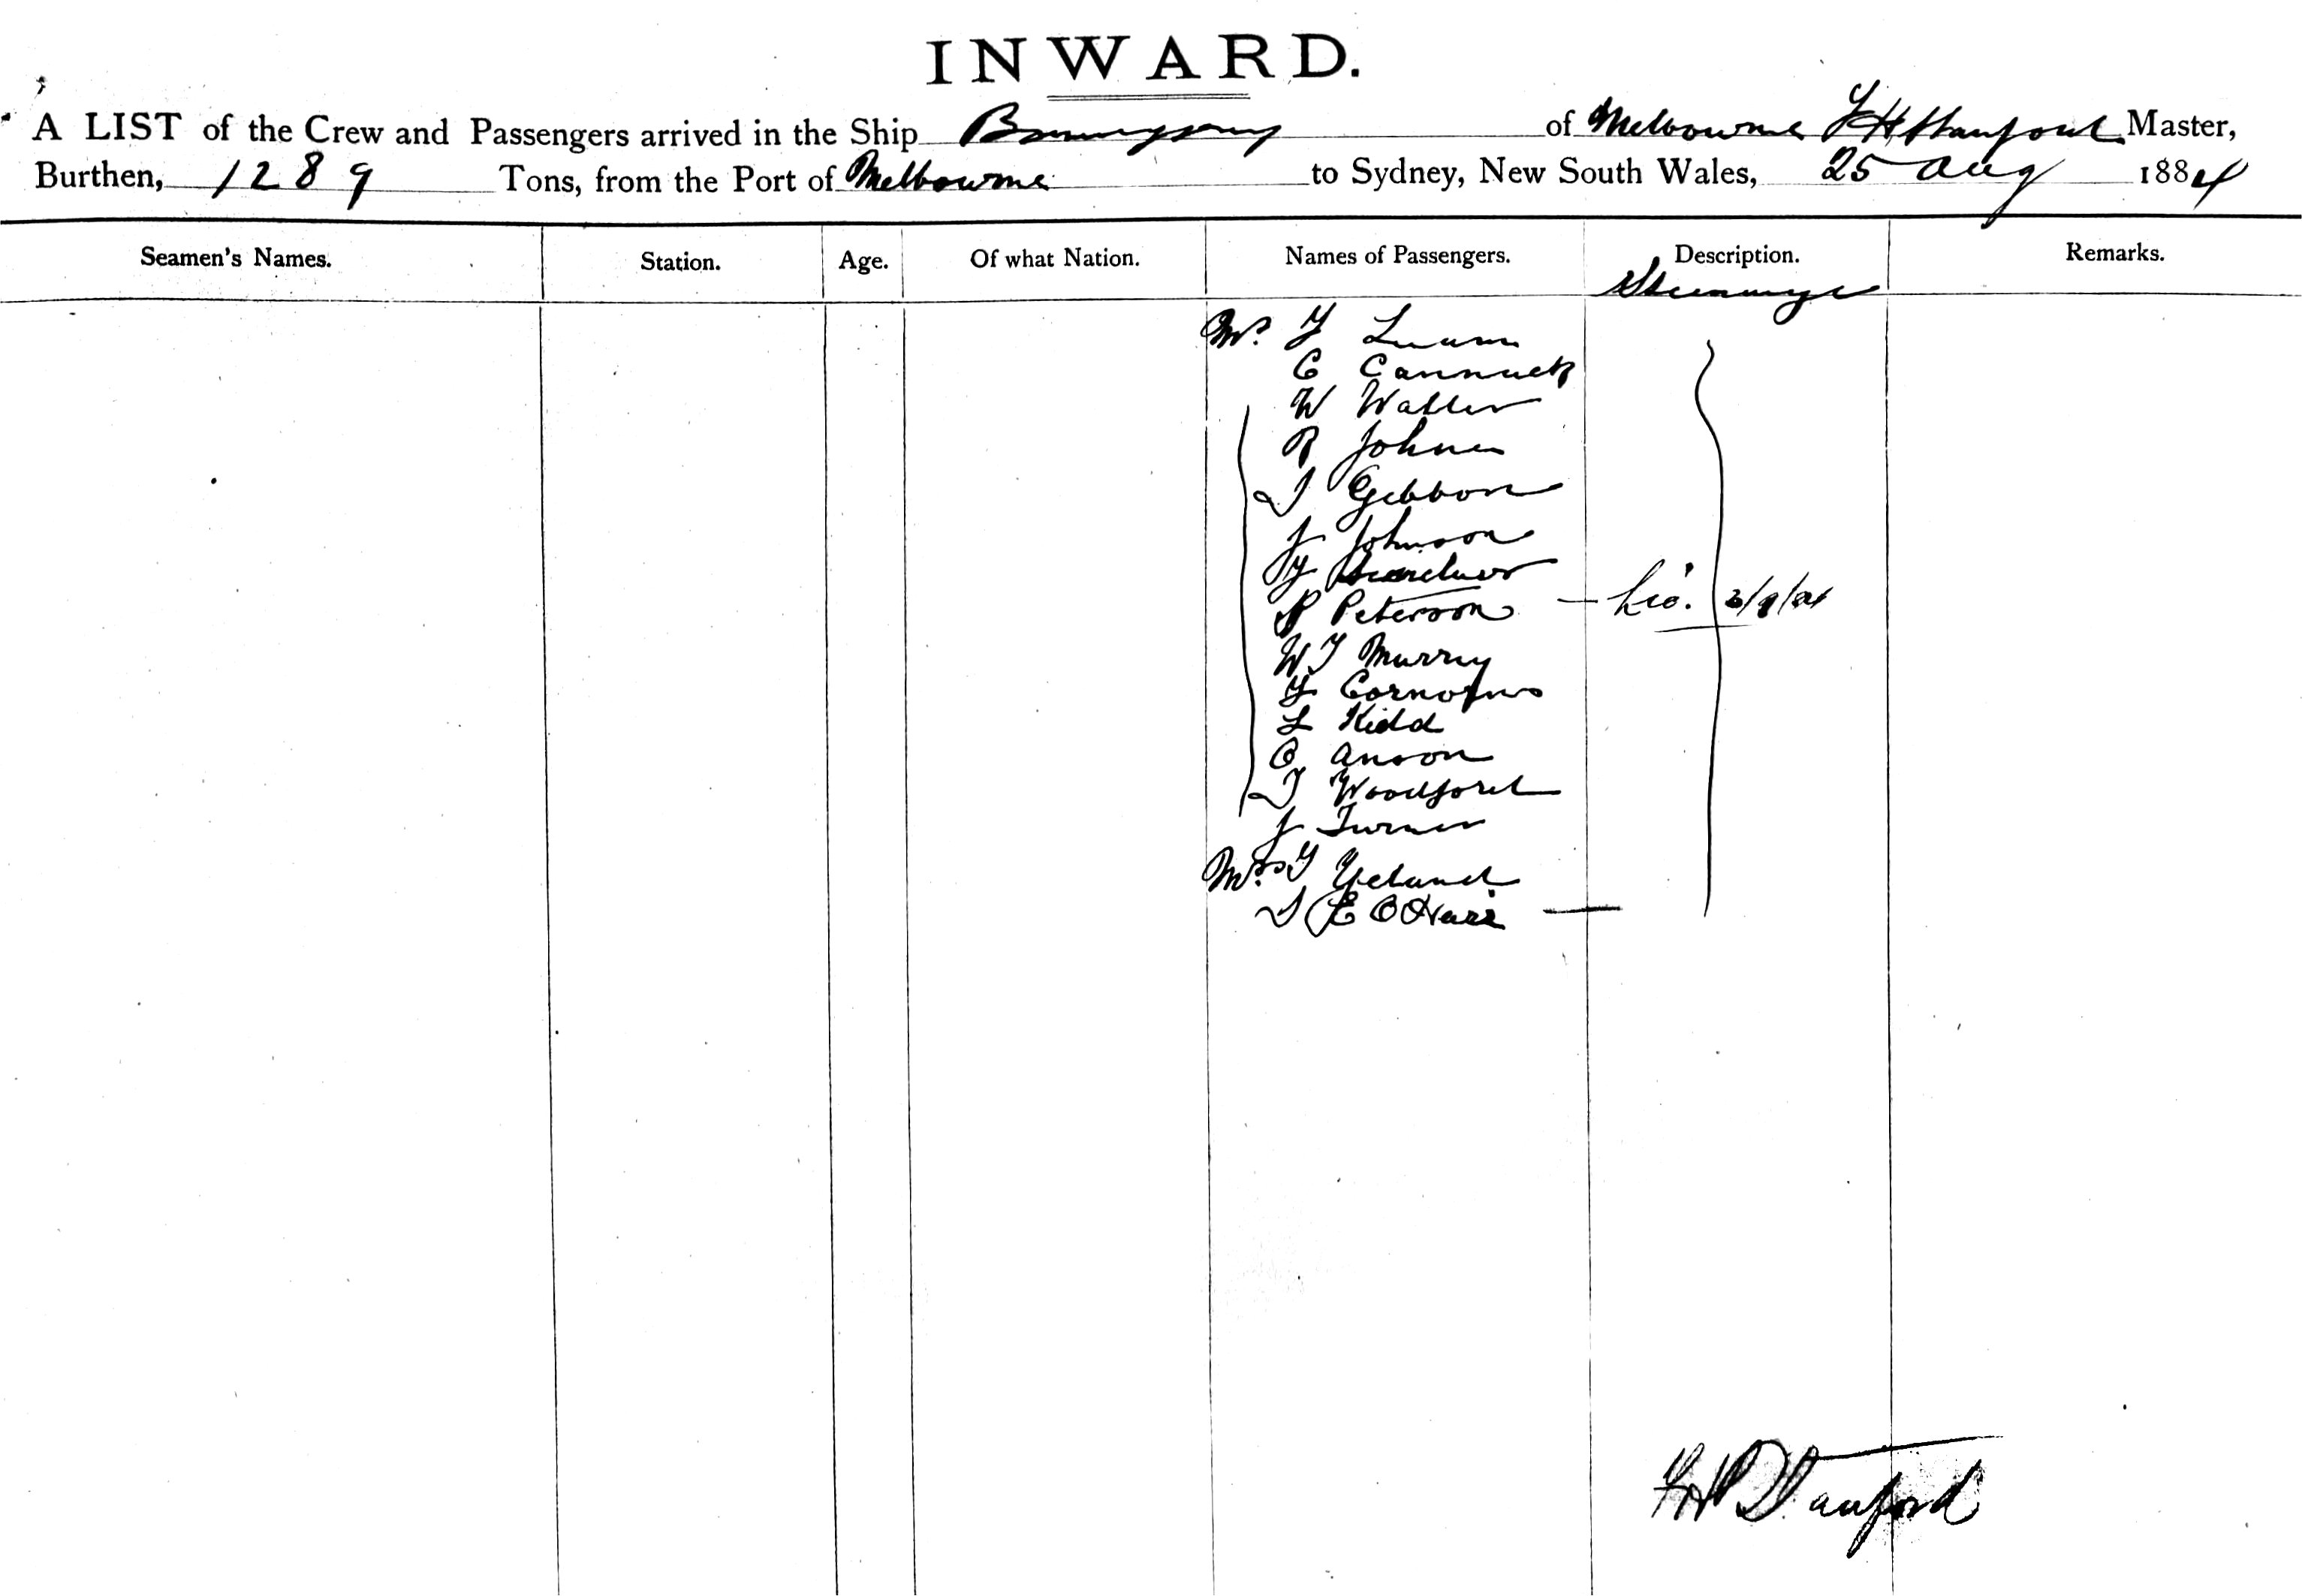 INWARD.
A LIST of the Crew and Passengers arrived in the Ship of Melbourne Master,
Burthen, 1289 Tons, from the Port of Melbourne to Sydney, New South Wales, 25 Aug 1884
Seamen's Names. Station. Age. Of what Nation. Names of Passengers. Description. Remarks.
Steerage
Mr
C Cannuck
W Waller
R
Gibbon
J Johnson
P Peterson
W J Murry
L Kidd
C Anson
Woodford
J Turner
Mrs
E O'Hara
H Stanford